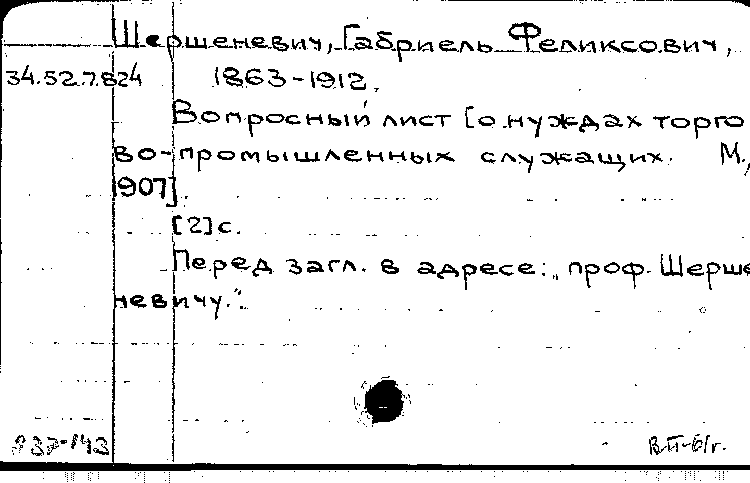 Шершеневич, Габриель Феликсович,
34.52.7.824 1863-1912.
Вопросный лист [о нуждах торго
во-промышленных служащих. М.,
1907].
[2] с.
Перед загл. в адресе: „проф. Шерше
невичу.".
В.II-61г.